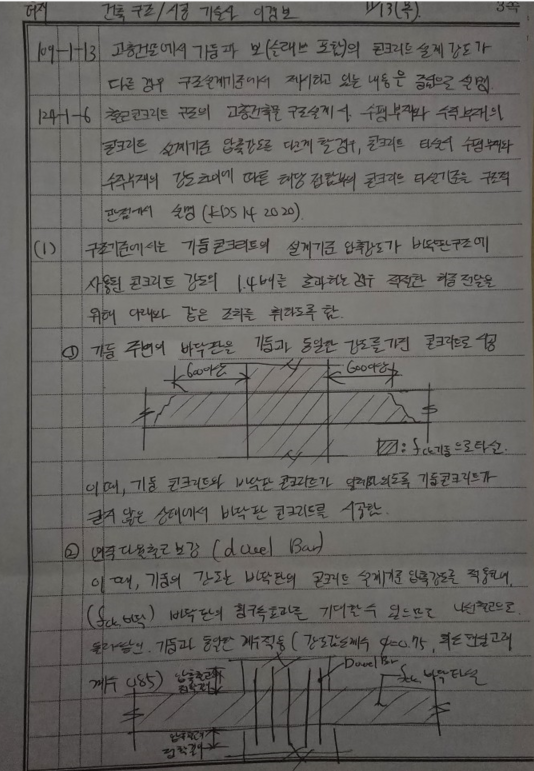 건축구조/시공 기술사 이경보 11/13(목). 3쪽
109-1-13 고층건물에서 기둥과 보(슬래브 포함)의 콘크리트 설계강도가
다른 경우 구조설계기준에서 제시하고 있는 내용을 중심으로 설명
124-1-6 철근콘크리트 구조의 고층건축물 구조설계시, 수평부재와 수직부재의
콘크리트 설계기준 압축강도를 다르게 할 경우, 콘크리트 타설시 수평부재와
수직부재의 강도차이에 따른 해당 접합부의 콘크리트 타설기준을 구조적
관점에서 설명 (KDS 14 20 20).
(1) 구조기준에서는 기둥콘크리트의 설계기준 압축강도가 바닥판구조에
사용된 콘크리트 강도의 1.4배를 초과하는 경우 적절한 하중 전달을
위해 다음과 같은 조치를 취하도록 함.
① 기둥 주변의 바닥판을 기둥과 동일한 강도를 가진 콘크리트로 시공
600이상 600이상
: fck기둥으로 타설.
이때, 기둥 콘크리트와 바닥판 콘크리트가 일체화되도록 기둥콘크리트가
굳지 않은 상태에서 바닥판 콘크리트를 시공함.
② 연직다월철근보강 (dowel Bar)
이때, 기둥의 강도는 바닥판의 콘크리트 설계기준 압축강도를 적용하며,
(fck 바닥) 바닥판의 횡구속효과를 기대할 수 없으므로 나선철근으로
기둥과 동일한 계수적용 (강도감소계수 φ=0.75,
계수 0.85) Dowel Bar fck 바닥 타설
압축철근 정착길이
압축철근
정착길이